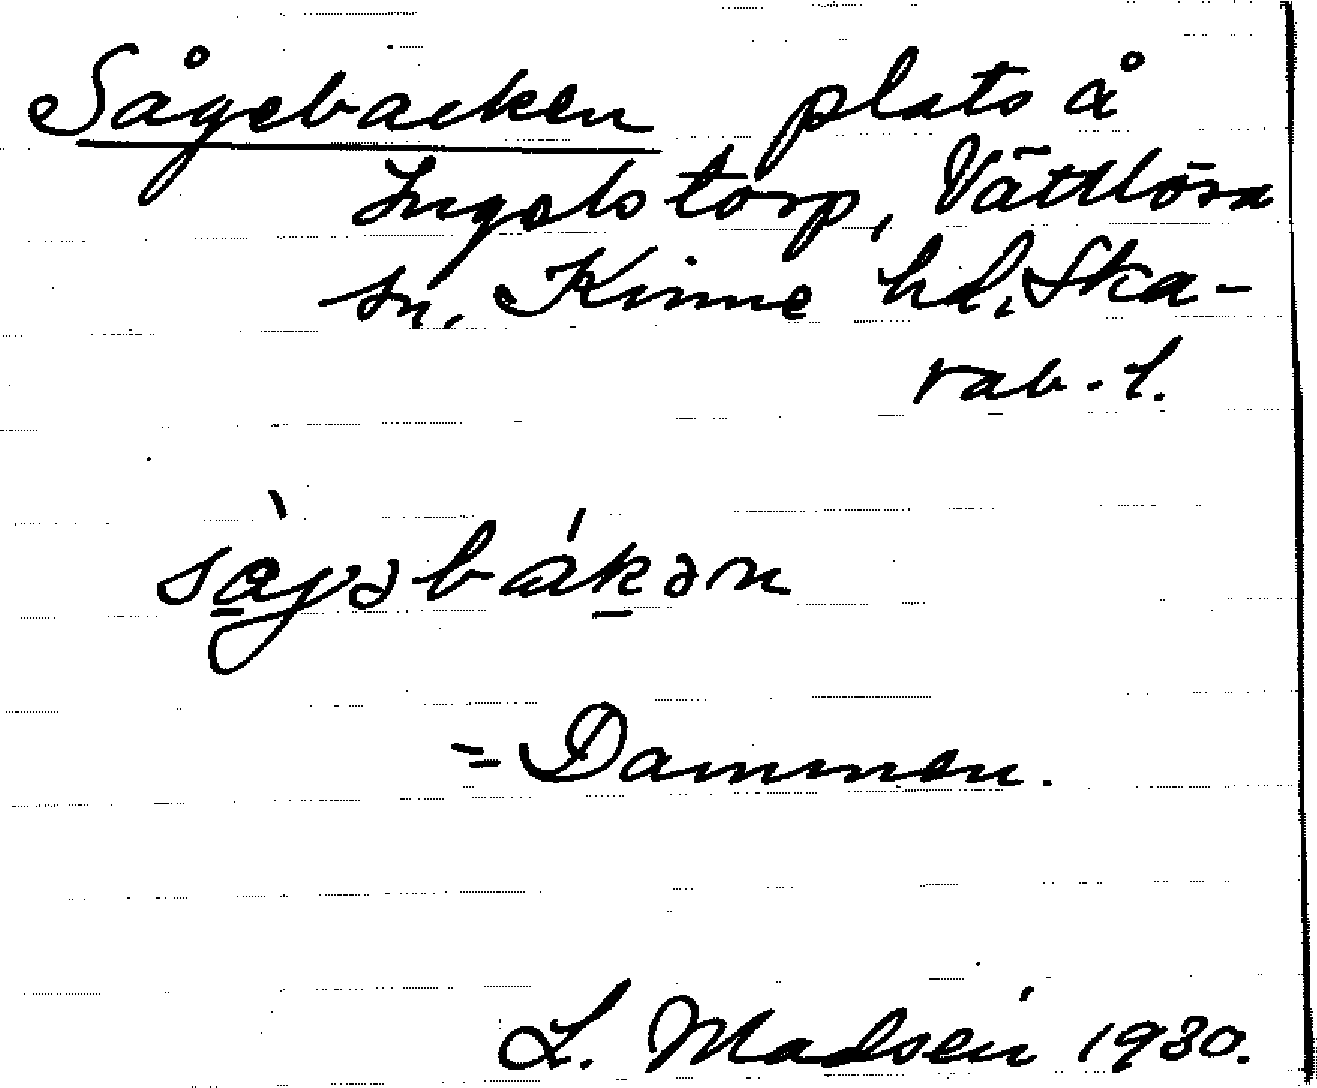 Sågebacken plats å
Ingelstorp, Vättlösa
sn. Kinne hd. Ska-
rab. l.
sàgəbákən
= Dammen.
L. Madsén 1930.